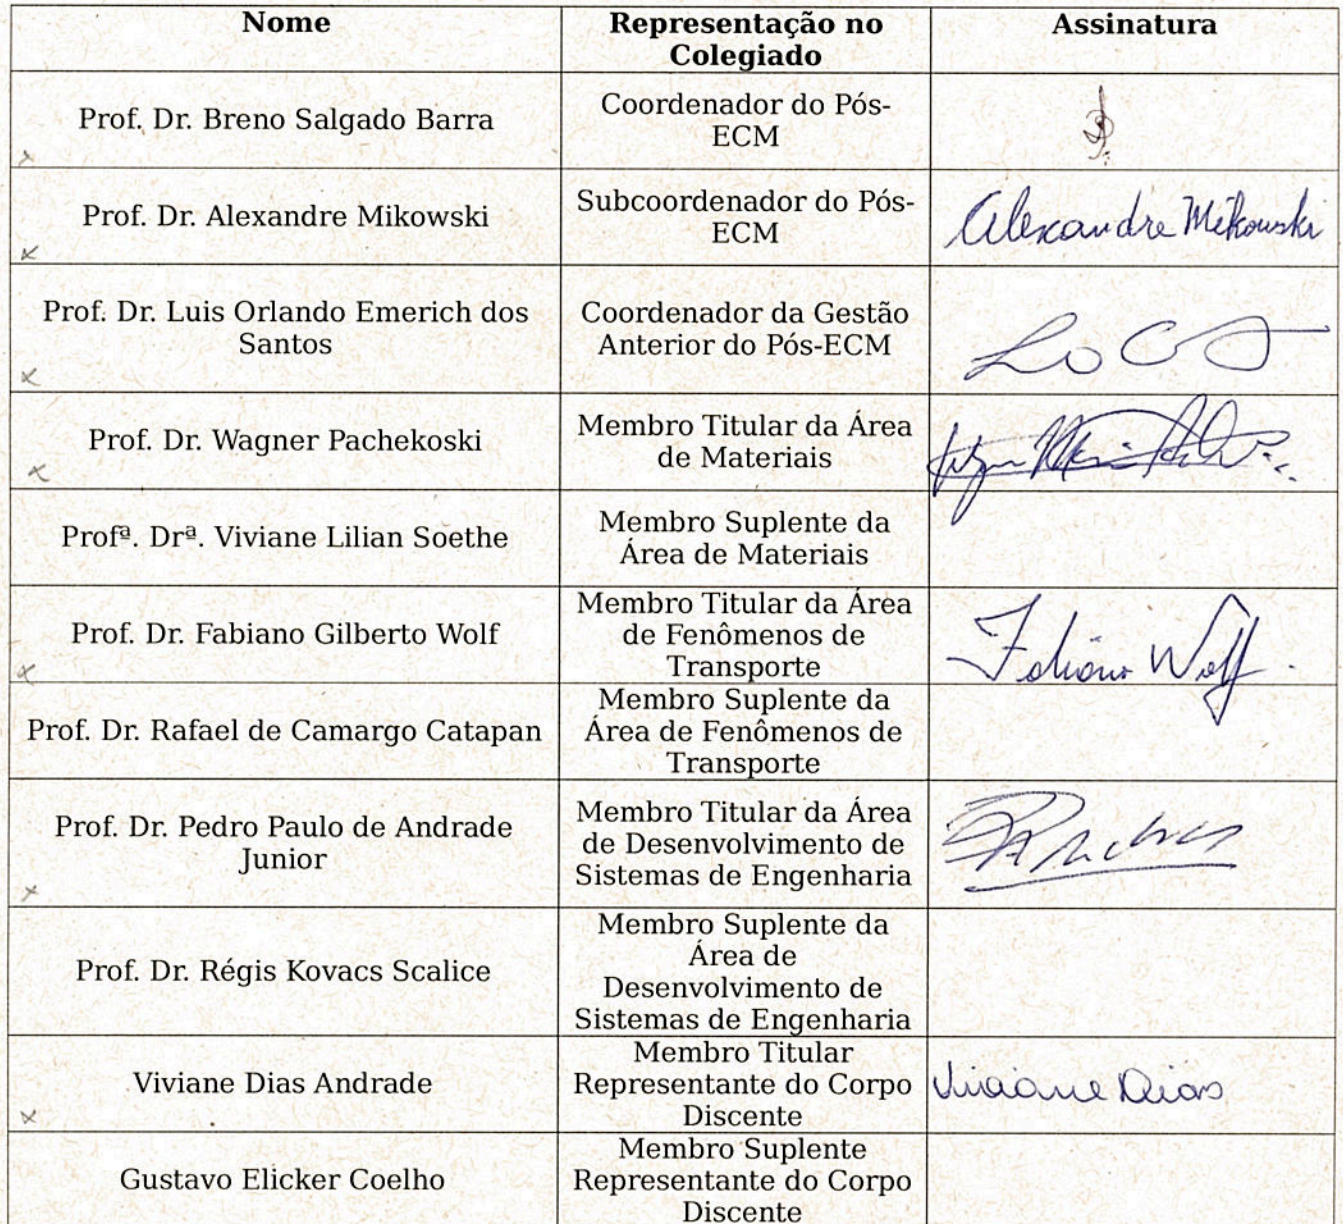 Nome
Representação no
Colegiado
Assinatura
Prof. Dr. Breno Salgado Barra
Coordenador do Pós-
ECM
Prof. Dr. Alexandre Mikowski
Subcoordenador do Pós-
ECM
Alexandre Mikowski
Prof. Dr. Luis Orlando Emerich dos
Santos
Coordenador da Gestão
Anterior do Pós-ECM
Prof. Dr. Wagner Pachekoski
Membro Titular da Área
de Materiais
Profª. Drª. Viviane Lilian Soethe
Membro Suplente da
Área de Materiais
Prof. Dr. Fabiano Gilberto Wolf
Membro Titular da Área
de Fenômenos de
Transporte
Fabiano Wolf
Prof. Dr. Rafael de Camargo Catapan
Membro Suplente da
Área de Fenômenos de
Transporte
Prof. Dr. Pedro Paulo de Andrade
Junior
Membro Titular da Área
de Desenvolvimento de
Sistemas de Engenharia
Prof. Dr. Régis Kovacs Scalice
Membro Suplente da
Área de
Desenvolvimento de
Sistemas de Engenharia
Viviane Dias Andrade
Membro Titular
Representante do Corpo
Discente
Viviane Dias
Gustavo Elicker Coelho
Membro Suplente
Representante do Corpo
Discente